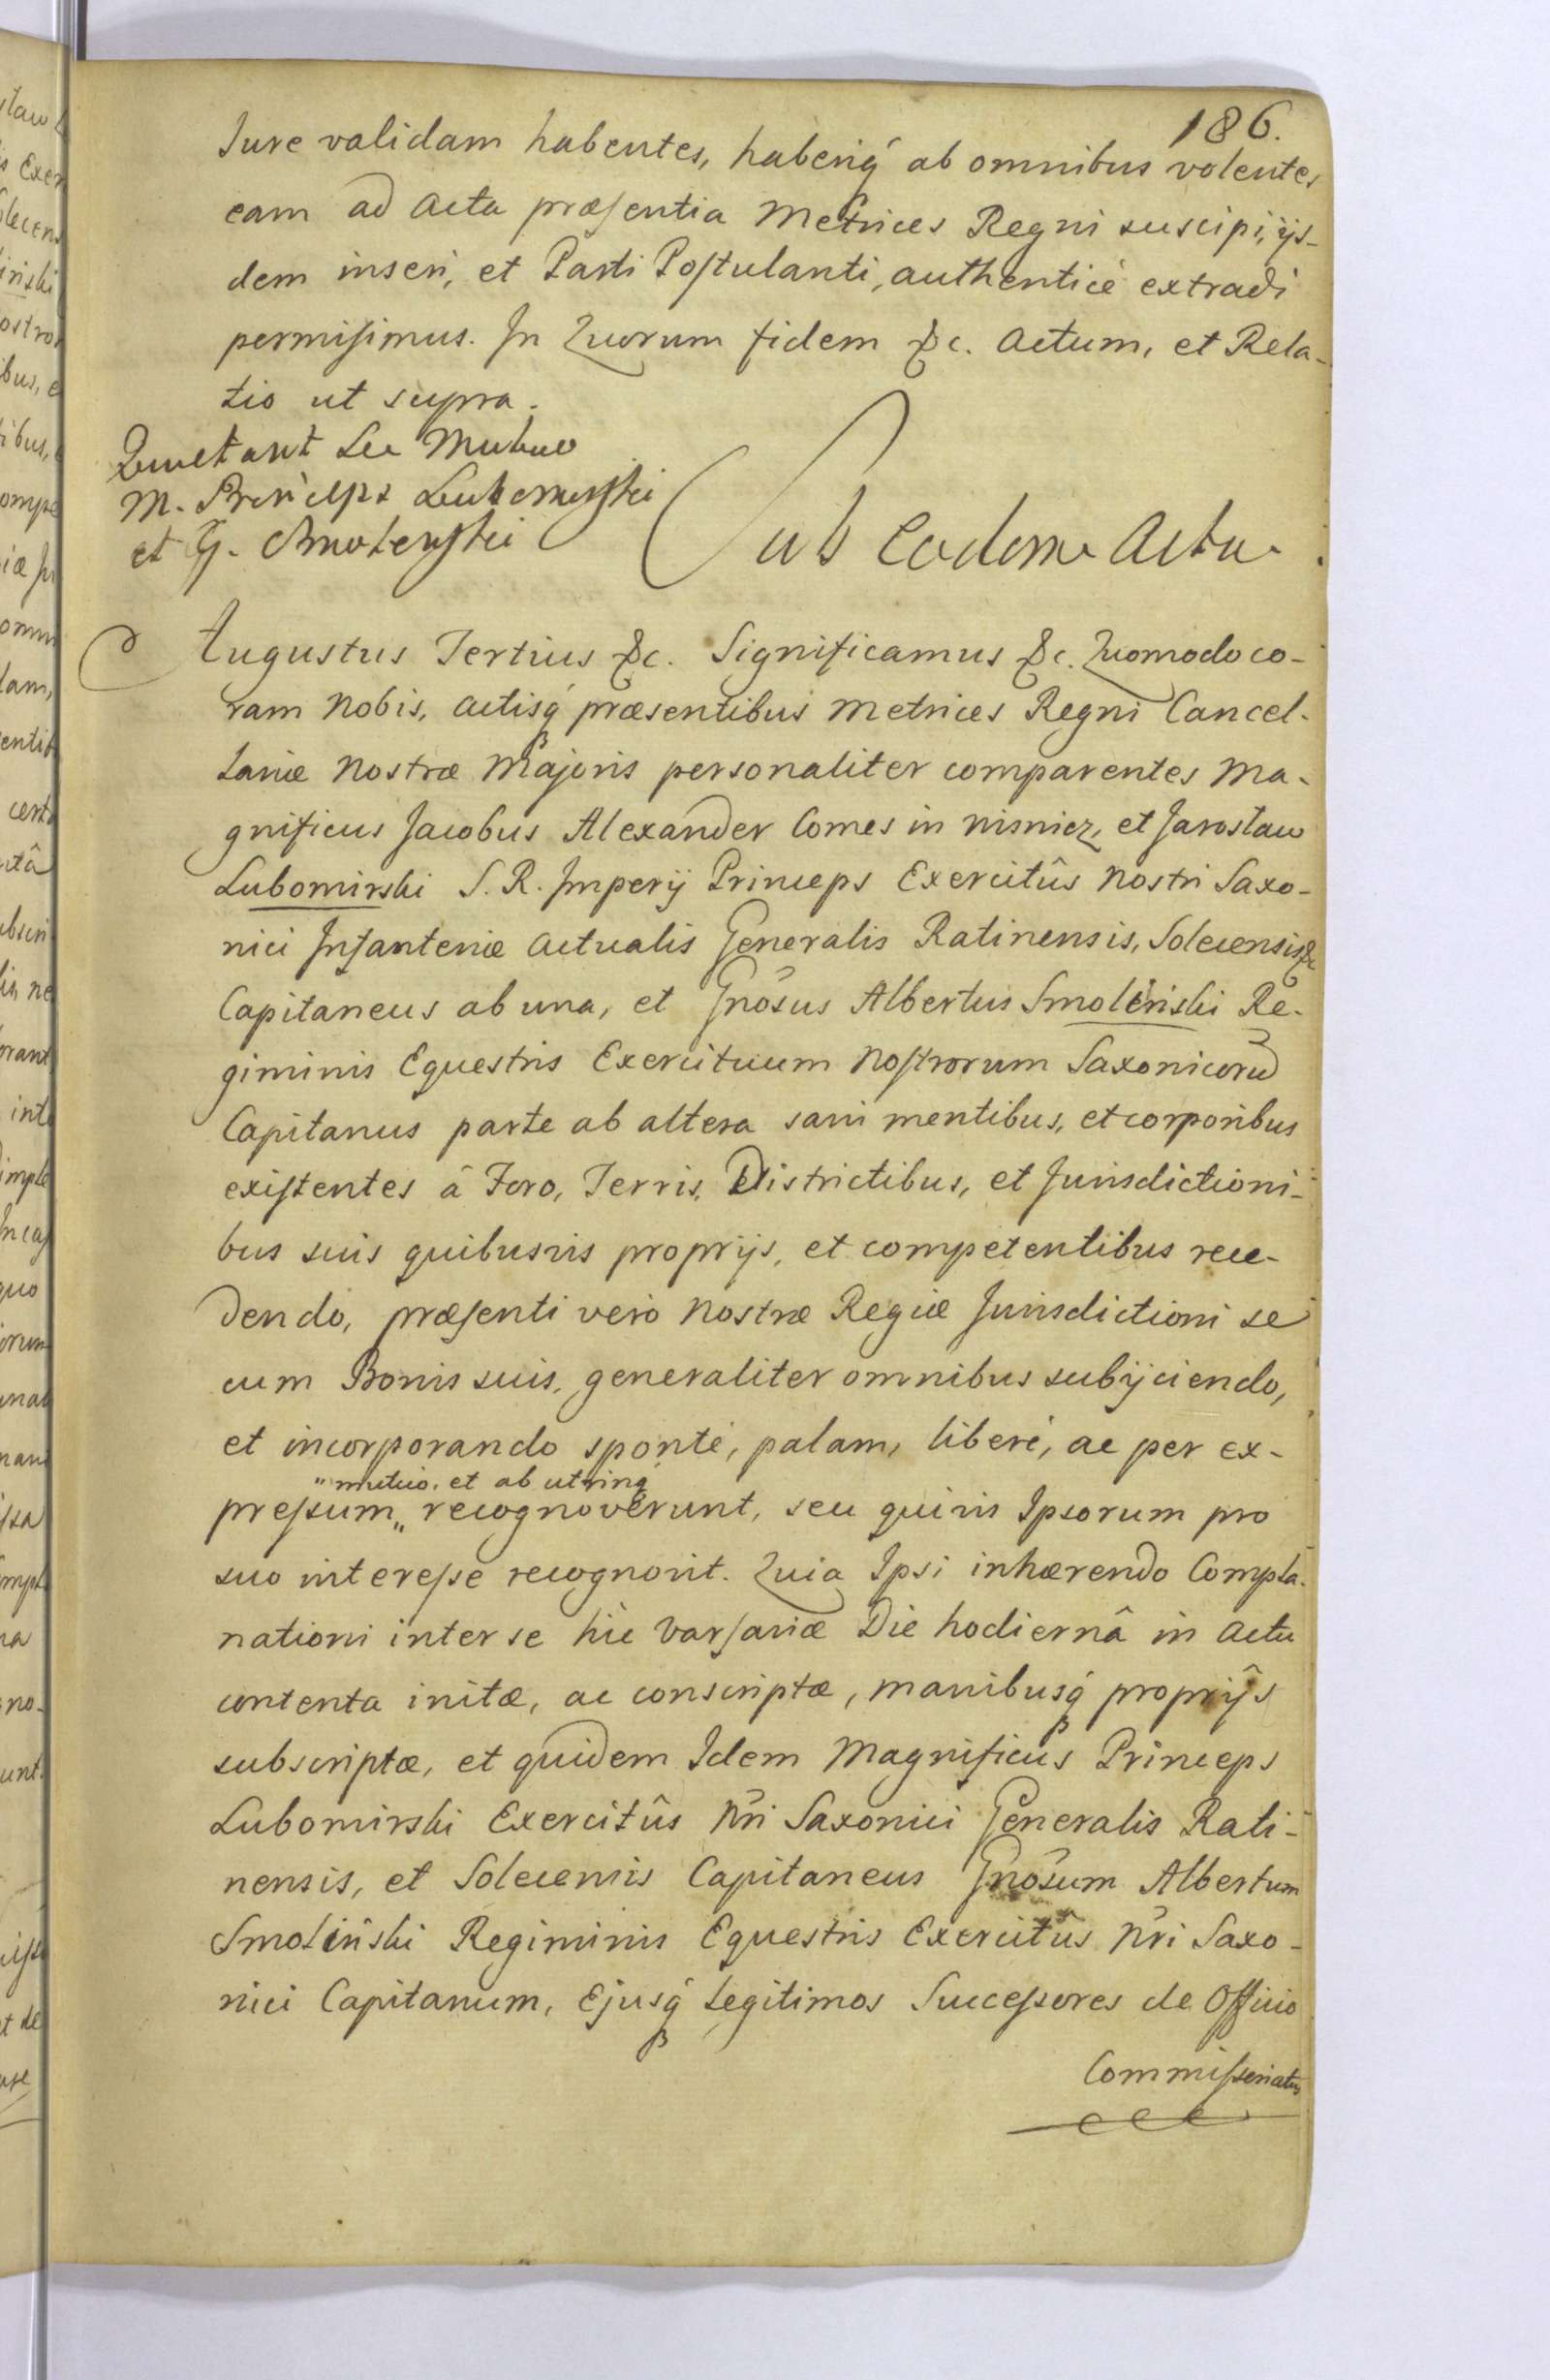 186.
Jure validam habentes, haberiq́ ab omnibus volentes
eam ad Acta præsentia Metrices Regni suscipi, ijs-
dem inseri, et Parti Postulanti, authenticè extradi
permisimus. In Quorum fidem &c. Actum, et Rela-
tio ut supra.
Quietant Se Mutuo
M. Princeps Lubomirski
et G.
Sub Eodem Actu.
Augustus Tertius &c. Significamus &c. Quomodo co-
ram Nobis, Actisq́ præsentibus Metrices Regni Cancel-
lariæ Nostræ Majoris personaliter comparentes Ma-
gnificus Jacobus Alexander Comes in Wisnicz, et Jarosław
Lubomirski S. R. Imperij Princeps Exercitûs Nostri Saxo-
nici Infanteriæ Actualis Generalis Ratinensis, Solecensis &c
Capitaneus ab una, et Gnōsus Albertus Smoleński Re-
giminis Equestris Exercituum Nostrorum Saxonicorū
Capitanus parte ab altera sani mentibus, et corporibus
existentes â Foro, Terris, Districtibus, et Jurisdictioni-
bus suis quibusvis proprijs, et competentibus rece-
dendo, præsenti verò Nostræ Regiæ Jurisdictioni se
cum Bonis suis, generaliter omnibus subijciendo,
et incorporando spontè, palam, liberè, ac per ex-
"mutuo, et ab utrinq́
pressum„ recognoverunt, seu quivis Ipsorum pro
suo interesse recognovit. Quia Ipsi inhærendo Compla-
nationi inter se hìc Varsaviæ Die hodiernâ in Actu
contenta initæ, ac conscriptæ, manibusq́ proprijs
subscriptæ, et quidem Idem Magnificus Princeps
Lubomirski Exercitûs Nr̄i Saxonici Generalis Rati-
nensis, et Solecensis Capitaneus Gnōsum Albertum
Smoliński Regiminis Equestris Exercitûs Nr̄i Saxo-
nici Capitanum, Ejusq́ Legitimos Successores de Officio
Commisseriatus